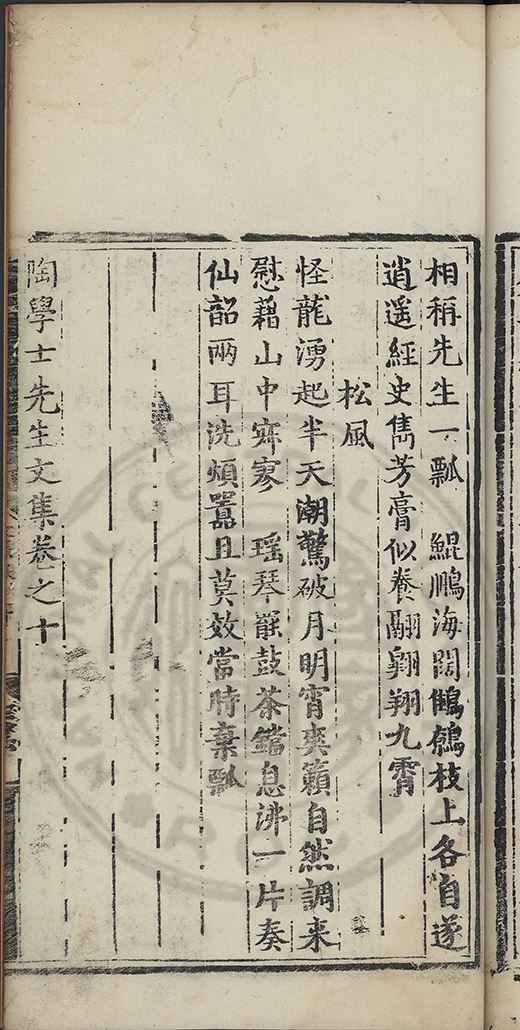 相稱先生一瓢　鯤鵬海闊鷦鷯枝上各自遂
逍遥經史雋芳膏似養翮翺翔九霄
松風
怪龍湧起半天潮驚破月明宵爽籟自然調来
慰藉山中寂寥　瑶琴罷鼓茶鐺息沸一片奏
仙韶兩耳洗煩囂且莫效當時棄瓢
陶學士先生文集卷之十